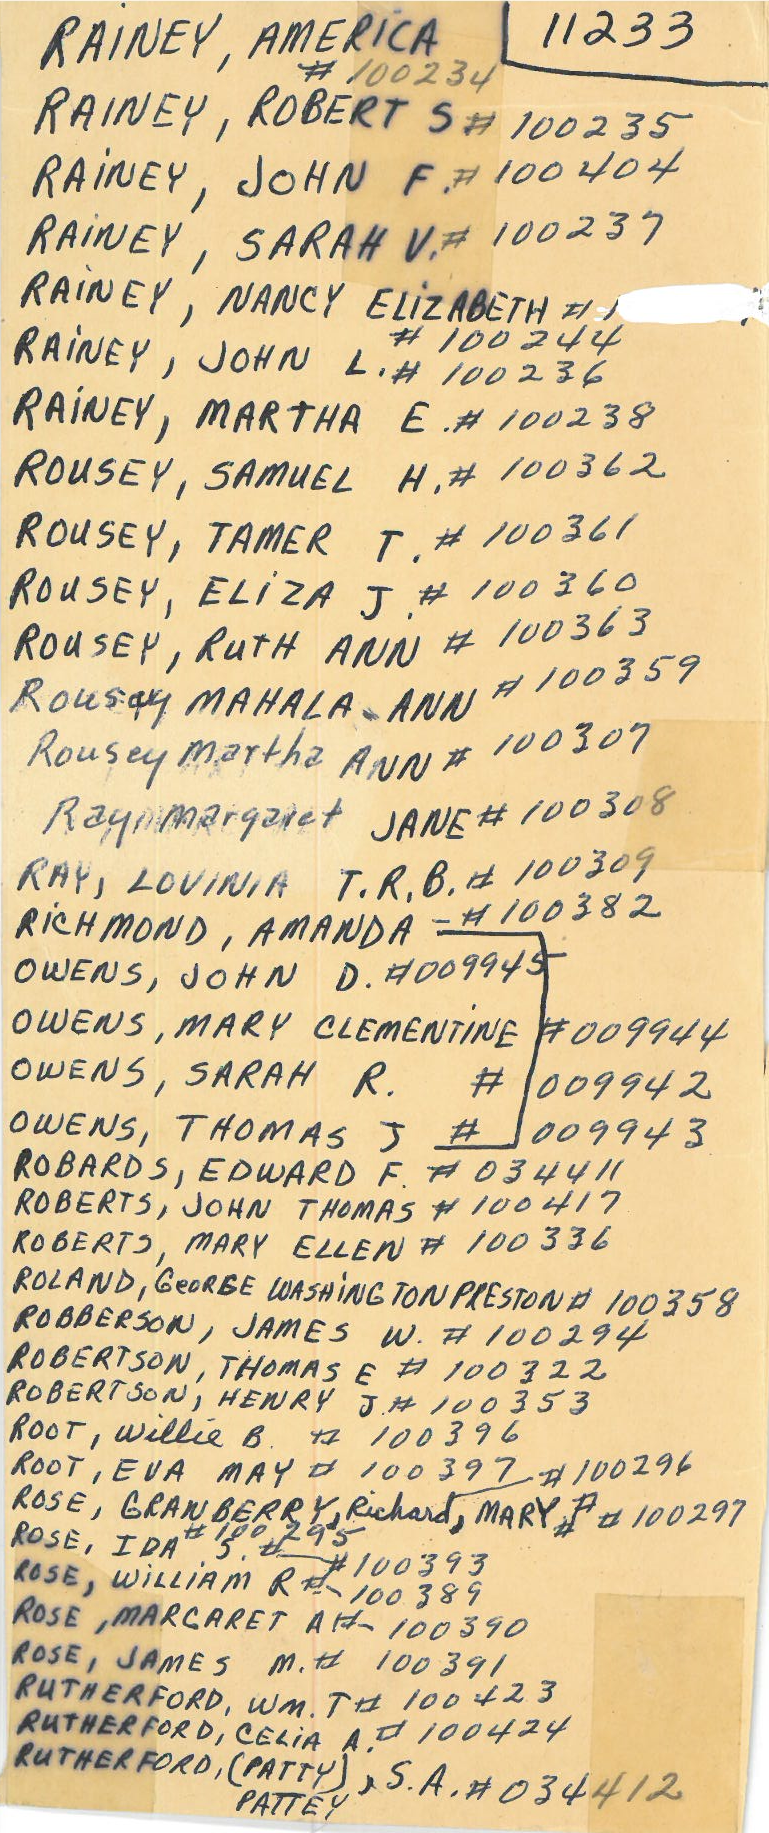 RAINEY, AMERICA 11233
# 100234
RAINEY, ROBERT S # 100235
RAINEY, JOHN F. # 100404
RAINEY, SARAH V. # 100237
RAINEY, NANCY ELIZABETH # 1
# 100244
RAINEY, JOHN L. # 100236
RAINEY, MARTHA E. # 100238
ROUSEY, SAMUEL H. # 100362
ROUSEY, TAMER T. # 100361
ROUSEY, ELIZA J. # 100360
ROUSEY, RUTH ANN # 100363
Rousey MAHALA ANN # 100359
Rousey Martha ANN # 100307
Ray Margaret JANE # 100308
RAY, LOVINIA T.R.B. # 100309
RICHMOND, AMANDA - # 100382
OWENS, JOHN D. # 009945
OWENS, MARY CLEMENTINE # 009944
OWENS, SARAH R. # 009942
OWENS, THOMAS J # 009943
ROBARDS, EDWARD F. # 034411
ROBERTS, JOHN THOMAS # 100417
ROBERTS, MARY ELLEN # 100336
ROLAND, GEORGE WASHINGTON PRESTON # 100358
ROBBERSON, JAMES W. # 100294
ROBERTSON, THOMAS E # 100322
ROBERTSON, HENRY J. # 100353
ROOT, Willie B. # 100396
ROOT, EVA MAY # 100397 # 100296
ROSE, GRANBERRY, Richard, MARY, # # 100297
# 100295
ROSE, IDA S. # # 100393
ROSE, WILLIAM R # - 100389
ROSE, MARGARET A # - 100390
ROSE, JAMES M. # 100391
RUTHERFORD, WM. T # 100423
RUTHERFORD, CELIA A. # 100424
RUTHERFORD, (PATTY), S.A. # 034412
PATTEY